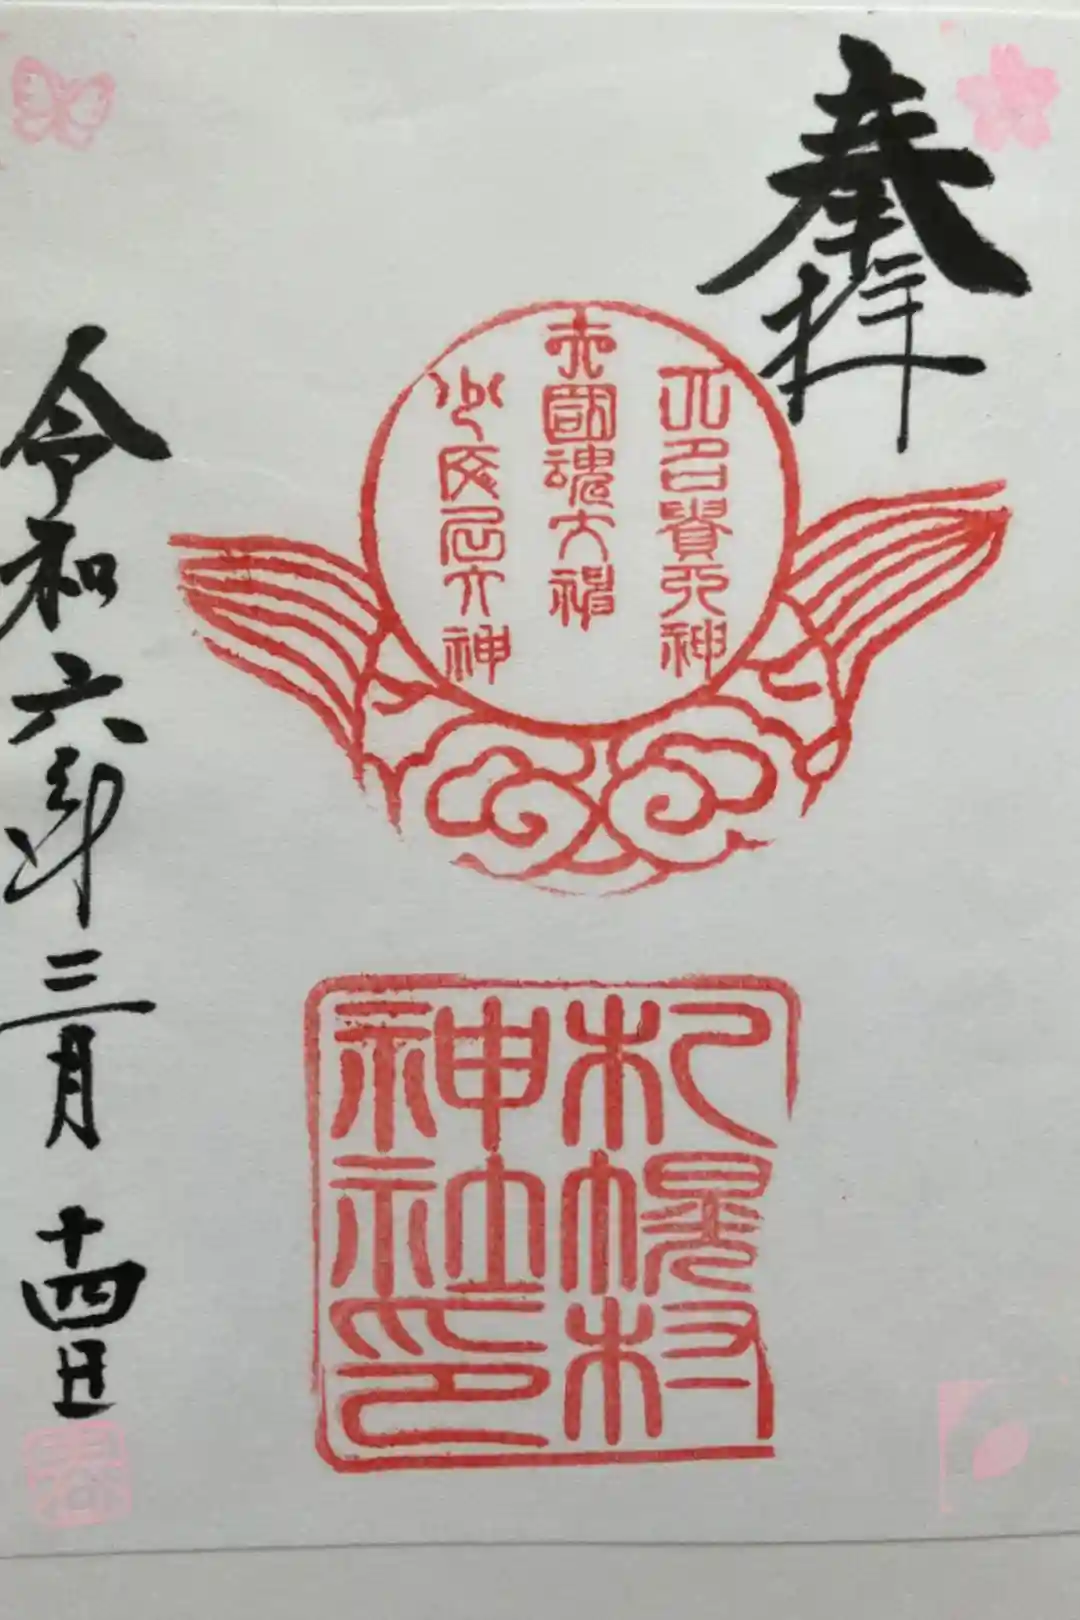 奉拝
大名貴大神
大國魂大神
少彦名大神
札幌村
神社印
令和六年三月十四日
春